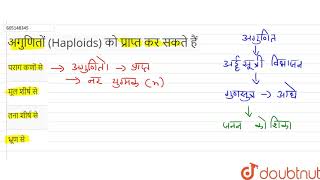 605148345
अगुणितों (Haploids) को प्राप्त कर सकते हैं
पराग कणों से → अगुणितो → प्राप्त
→ नर युग्मक (n)
मूल शीर्ष से
तना शीर्ष से
भ्रूण से
अगुणित
अर्द्धसूत्री विभाजन
गुणसूत्र → आधे
जनन कोशिका
doubtnut